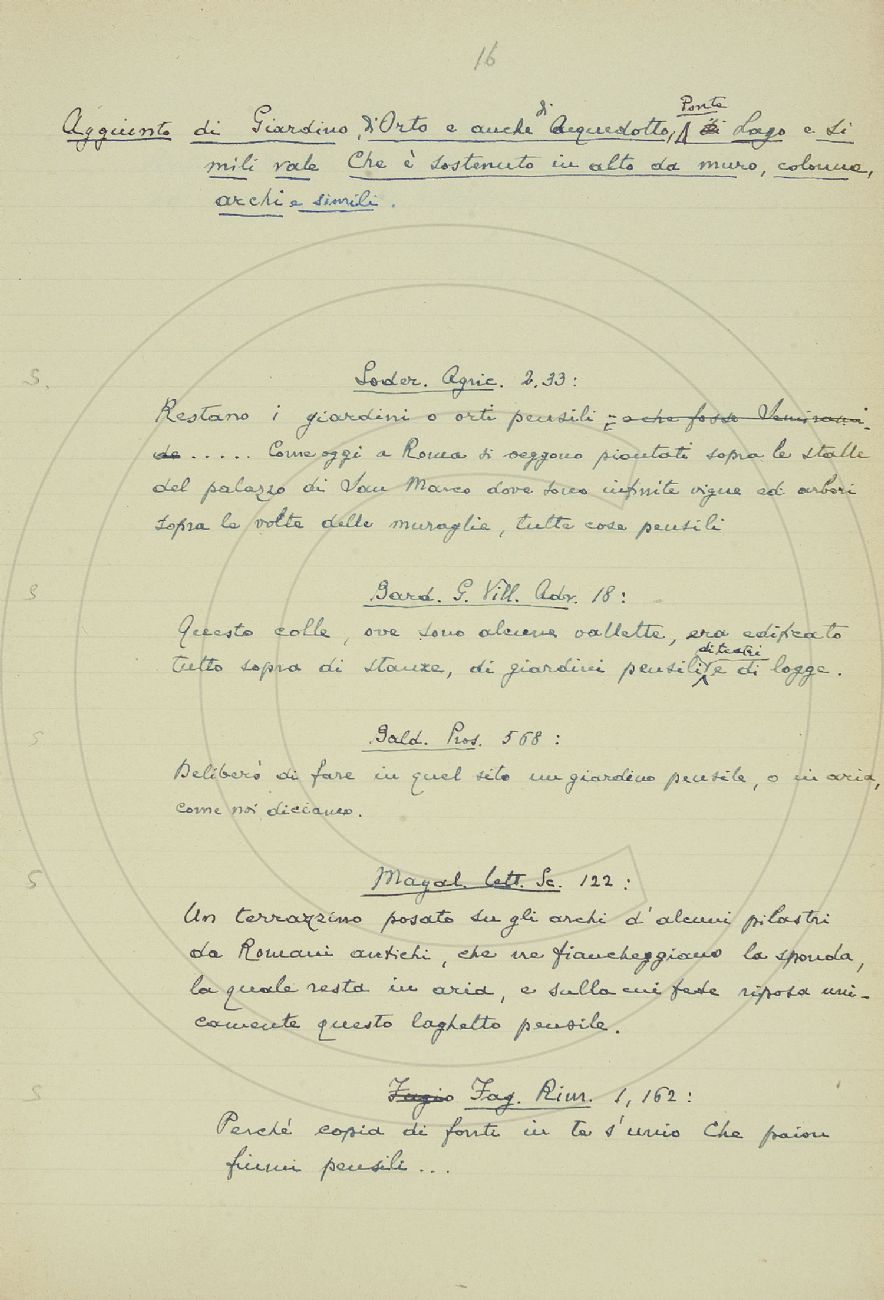 16
Aggiunto di Giardino, d'Orto e anche di Acquedotto, Ponte di Lago e Si
mili vale Che è sostenuto in alto da muro, colonne,
archi e simili.
S.
Soder. Agric. 2.33:
Restano i giardini o orti pensili; o che fosse Semirami-
de ..... Come oggi a Roma si veggono piantati sopra le stalle
del palazzo di San Marco dove sono infinite vigne ed arbori
sopra le volte delle muraglie, tutte cose pensili
S
Bard. G. Vill. Adr. 18:
Questo colle, ove sono alcune vallette, era edificato
tutto sopra di stanze, di giardini pensili, di teatri e di logge.
S
Bald. Pros. 568:
Deliberò di fare in quel sito un giardino pensile, o in aria,
come noi diciamo.
S
Magal. Lett. Sc. 122:
Un terrazzino posato su gli archi d'alcuni pilastri
da Romani antichi, che ne fiancheggiano la sponda,
la quale resta in aria, e sulla cui fede riposa uni-
camente questo laghetto pensile.
S
Fagio Fag. Rim. 1, 162:
Perché copia di fonti in te s'unio Che paion
fiumi pensili ...
C